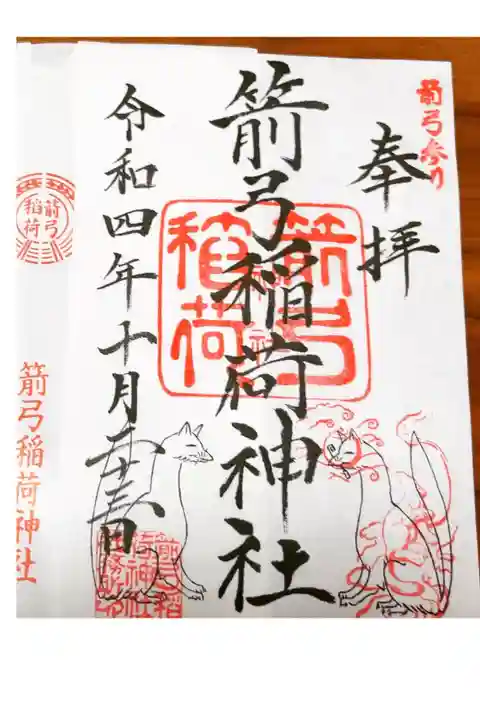 箭弓参り
奉拝
箭弓稲荷神社
箭弓
稲荷
令和四年十月二十三日
箭弓
稲荷
箭弓稲荷神社